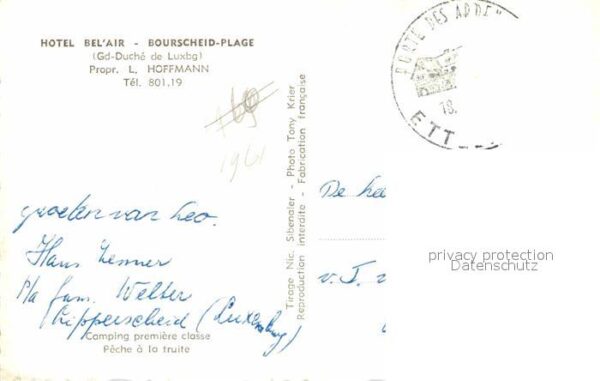 HOTEL BEL'AIR - BOURSCHEID-PLAGE
(Gd-Duché de Luxbg)
Propr. L, HOFFMANN
Tél. 801.19
PORTE DES ARDE
18.
ETT
69
1961
Tirage Nic. Sibenaler - Photo Tony Krier
Reproduction interdite - Fabrication française
groeten van Leo.
Hans
p/a fam. Welter
Lipperscheid (Luxemburg)
De hee
v. J. v
privacy protection
Datenschutz
Camping première classe
Pêche à la truite